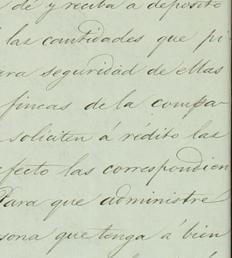 de y reciba a deposito
las cantidades que pi-
ara seguridad de ellas
fincas de la compa-
soliciten á rédito las
efecto las correspondien
Para que administre
sona que tenga á bien